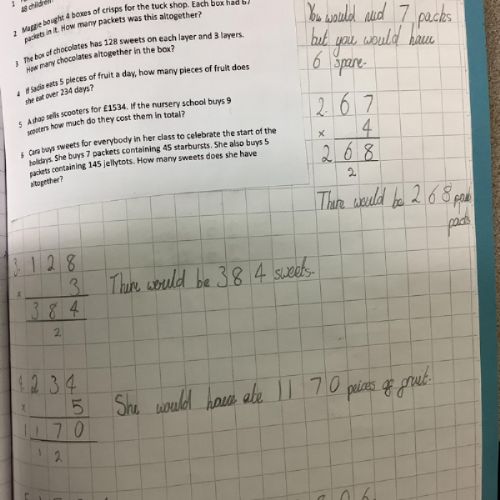 48 children
2 Maggie bought 4 boxes of crisps for the tuck shop. Each box had 67
packets in it. How many packets was this altogether?
3 The box of chocolates has 128 sweets on each layer and 3 layers.
How many chocolates altogether in the box?
4 If Sadia eats 5 pieces of fruit a day, how many pieces of fruit does
she eat over 234 days?
5 A shop sells scooters for £1534. If the nursery school buys 9
scooters how much do they cost them in total?
6 Cara buys sweets for everybody in her class to celebrate the start of the
holidays. She buys 7 packets containing 45 starbursts. She also buys 5
packets containing 145 jellytots. How many sweets does she have
altogether?
You would nud 7 packs
but you would have
6 spare.
2. 6 7
x 4
2 6 8
2
There would be 268
packs
3. 1 2 8
x 3
3 8 4
2
There would be 384 sweets.
4. 2 3 4
x 5
1 1 7 0
1 2
She would have ate 1170 peices of fruit.